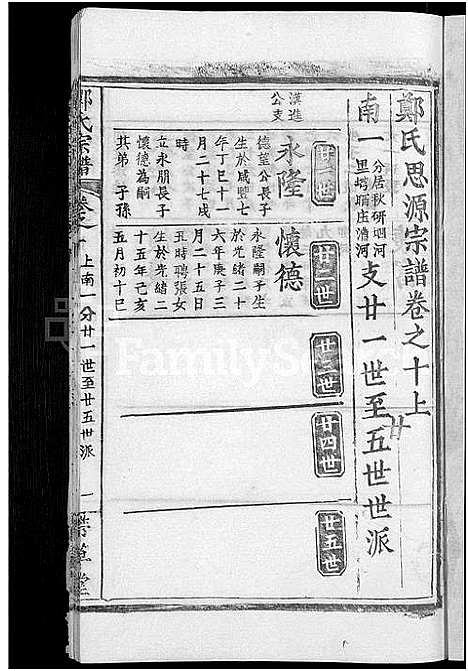 鄭氏思源宗譜卷之十上
南一
分居秋研泗河
里塆硒庄漕河
支廿一世至五世世派
廿
廿一世
廿二世
廿三世
廿四世
廿五世
漢進
公支
永隆
德望公長子
生於咸豐七
年丁巳十一
月二十七戌
時
立永朋長子
懷德為嗣
其弟 子孫
懷德
永隆嗣子生
於光緒二十
六年庚子三
月二十五日
丑時聘張女
生於光緒二
十五年己亥
五月初十巳
鄭氏宗譜
卷之
上南一分廿一世至廿五世派
一
FamilySearch